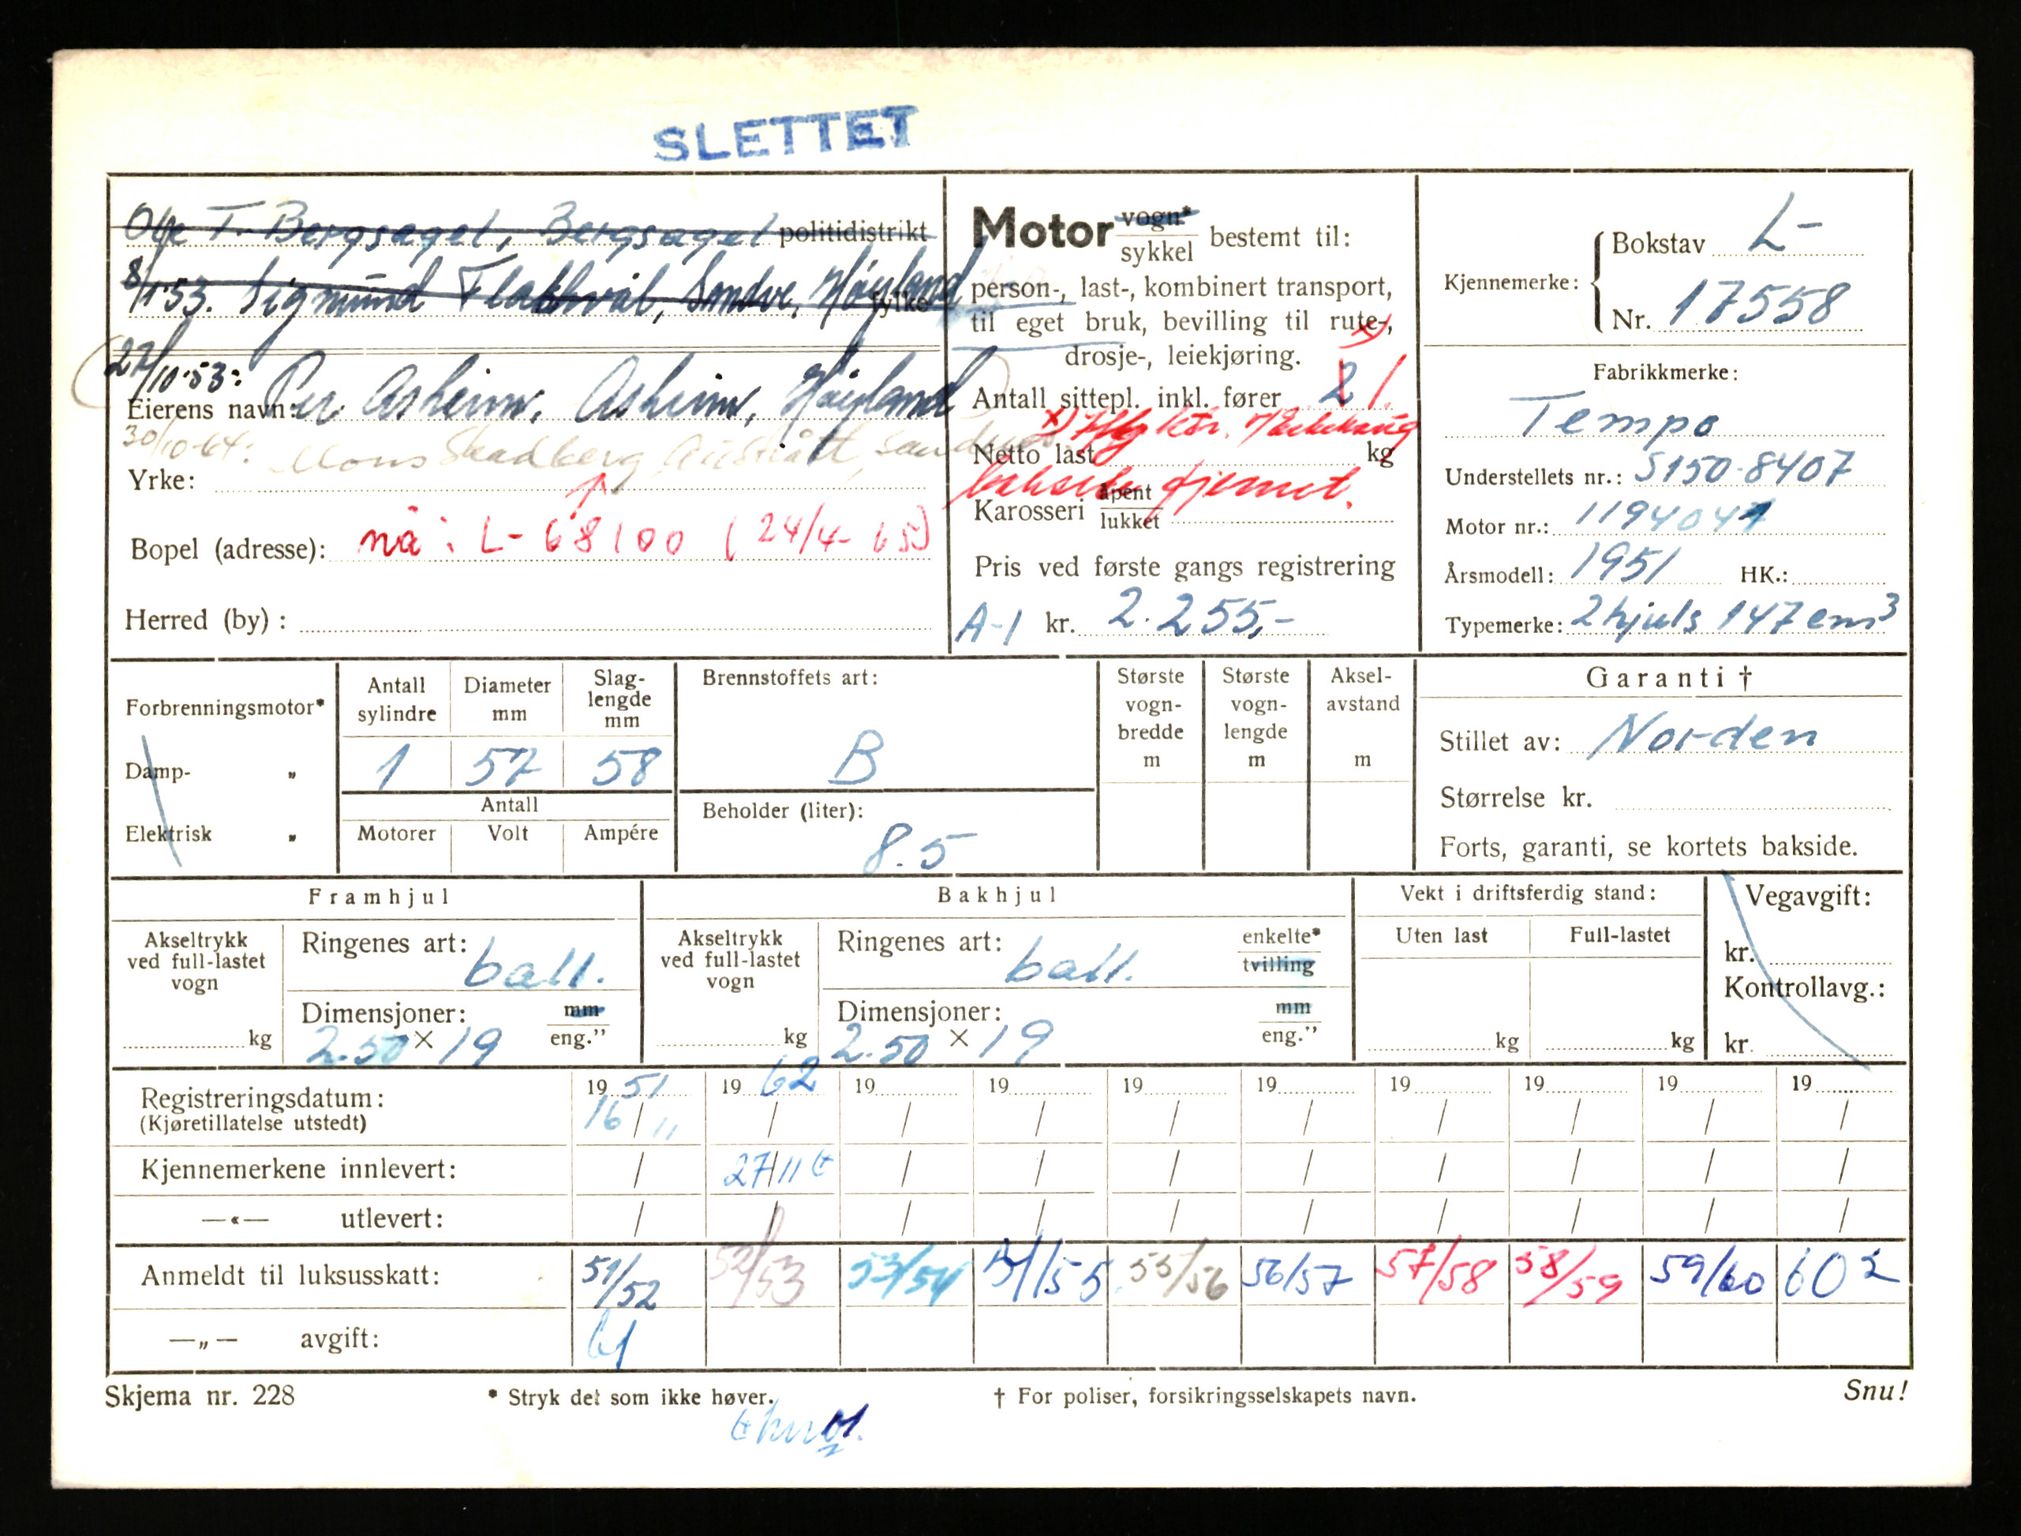 SLETTET
Ole T. Bergsagel, Bergsagel politidistrikt
8/1-53. Sigmund Flakkvål, Somdve, Høyland fylke
27/10-53: Per Asheim, Asheim, Høyland
Eierens navn:
30/10-64: Mons Skadberg Austrått, Sandnes
Yrke:
Bopel (adresse): nå: L-68100 (24/4-65)
Herred (by) :
Motor vogn* sykkel bestemt til:
person-, last-, kombinert transport,
til eget bruk, bevilling til rute-,
drosje-, leiekjøring.
Antall sittepl. inkl. fører 2 1.
Netto last kg
fjernet.
Karosseri åpent lukket
Pris ved første gangs registrering
A-1 kr. 2.255,-
Kjennemerke:
Bokstav L-
Nr. 17558
Fabrikkmerke:
Tempo
Understellets nr.: S150-8407
Motor nr.:
Årsmodell: 1951 HK.:
Typemerke: 2hjuls 147 cm³
Forbrenningsmotor*
Damp- „
Elektrisk „
Antall sylindre
Diameter mm
Slag-lengde mm
1 57 58
Antall
Motorer Volt Ampére
Brennstoffets art:
B
Beholder (liter):
8.5
Største vogn-bredde m
Største vogn-lengde m
Aksel-avstand m
Garanti †
Stillet av: Norden
Størrelse kr.
Forts, garanti, se kortets bakside.
Framhjul
Akseltrykk ved full-lastet vogn
kg
Ringenes art: ball.
Dimensjoner: mm eng.”
2.50 × 19
Bakhjul
Akseltrykk ved full-lastet vogn
kg
Ringenes art: ball. enkelte* tvilling
Dimensjoner: mm eng.”
2.50 × 19
Vekt i driftsferdig stand:
Uten last Full-lastet
kg kg
Vegavgift:
kr.
Kontrollavg.:
kr.
Registreringsdatum: 19 51 19 62 19 19 19 19 19 19 19 19
(Kjøretillatelse utstedt) 16/11 / / / / / / / / /
Kjennemerkene innlevert: / 27/11 / / / / / / / /
—«— utlevert: / / / / / / / / / /
Anmeldt til luksusskatt: 51/52 52/53 53/54 54/55 55/56 56/57 57/58 58/59 59/60 60 2
—„— avgift: 61
Skjema nr. 228 * Stryk det som ikke høver. † For poliser, forsikringsselskapets navn. Snu!